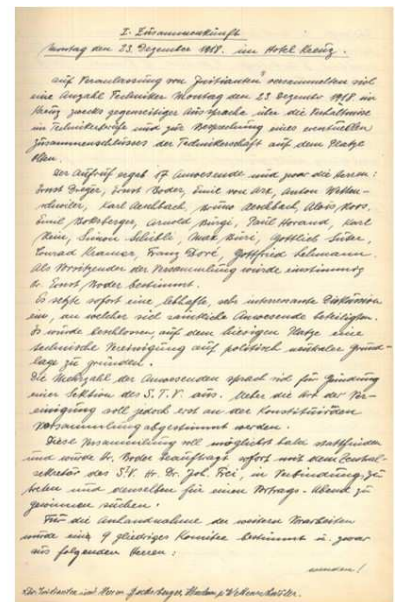 I. Zusammenkunft
Montag den 23. Dezember 1918. im Hotel Kreuz.
Auf Veranlassung von Initianten versammelten sich
eine Anzahl Techniker Montag den 23. Dezember 1918 im
Kreuz zwecks gegenseitiger Aussprache über die Verhältnisse
im Technikerberufe und zur Besprechung eines eventuellen
Zusammenschlusses der Technikerschaft auf dem Platze
Olten.
Der Aufruf ergab 17 Anwesende und zwar die Herren:
Ernst Dieger, Ernst Boder, Emil von Arx, Anton Wetten-
schwiler, Karl Aeschbach, Bruno Aeschbach, Alois Koos,
Emil Boksberger, Arnold Bürgi, Paul Horand, Karl
Hein, Simon Schibli, Max Büri, Gottlich Suter,
Conrad Kramer, Franz Doré, Gottfried Lehmann.
Als Vorsitzender der Versammlung wurde einstimmig
Hr. Ernst Boder bestimmt.
Es setzte sofort eine lebhafte, sehr interessante Diskussion
ein, an welcher sich sämtliche Anwesende beteiligten.
Es wurde beschlossen, auf dem hiesigen Platze eine
technische Vereinigung auf politisch neutraler Grund-
lage zu gründen.
Die Mehrzahl der Anwesenden sprach sich für Gründung
einer Sektion des S.T.V. aus. Ueber die Art der Ver-
einigung soll jedoch erst an der Konstituirenden
Versammlung abgestimmt werden.
Diese Versammlung soll möglichst bald stattfinden
und wurde Hr. Boder beauftragt sofort mit dem Central-
sekretär des S.T.V. Hr. Dr. Joh. Frei, in Verbindung zu
treten und denselben für einen Vortrags-Abend zu
gewinnen suchen.
Für die Anhandnahme der weitern Vorarbeiten
wurde eine 9 gliedriges Komitee bestimmt u. zwar
aus folgenden Herren:
wenden!
Die Initianten sind Herren Boksberger,